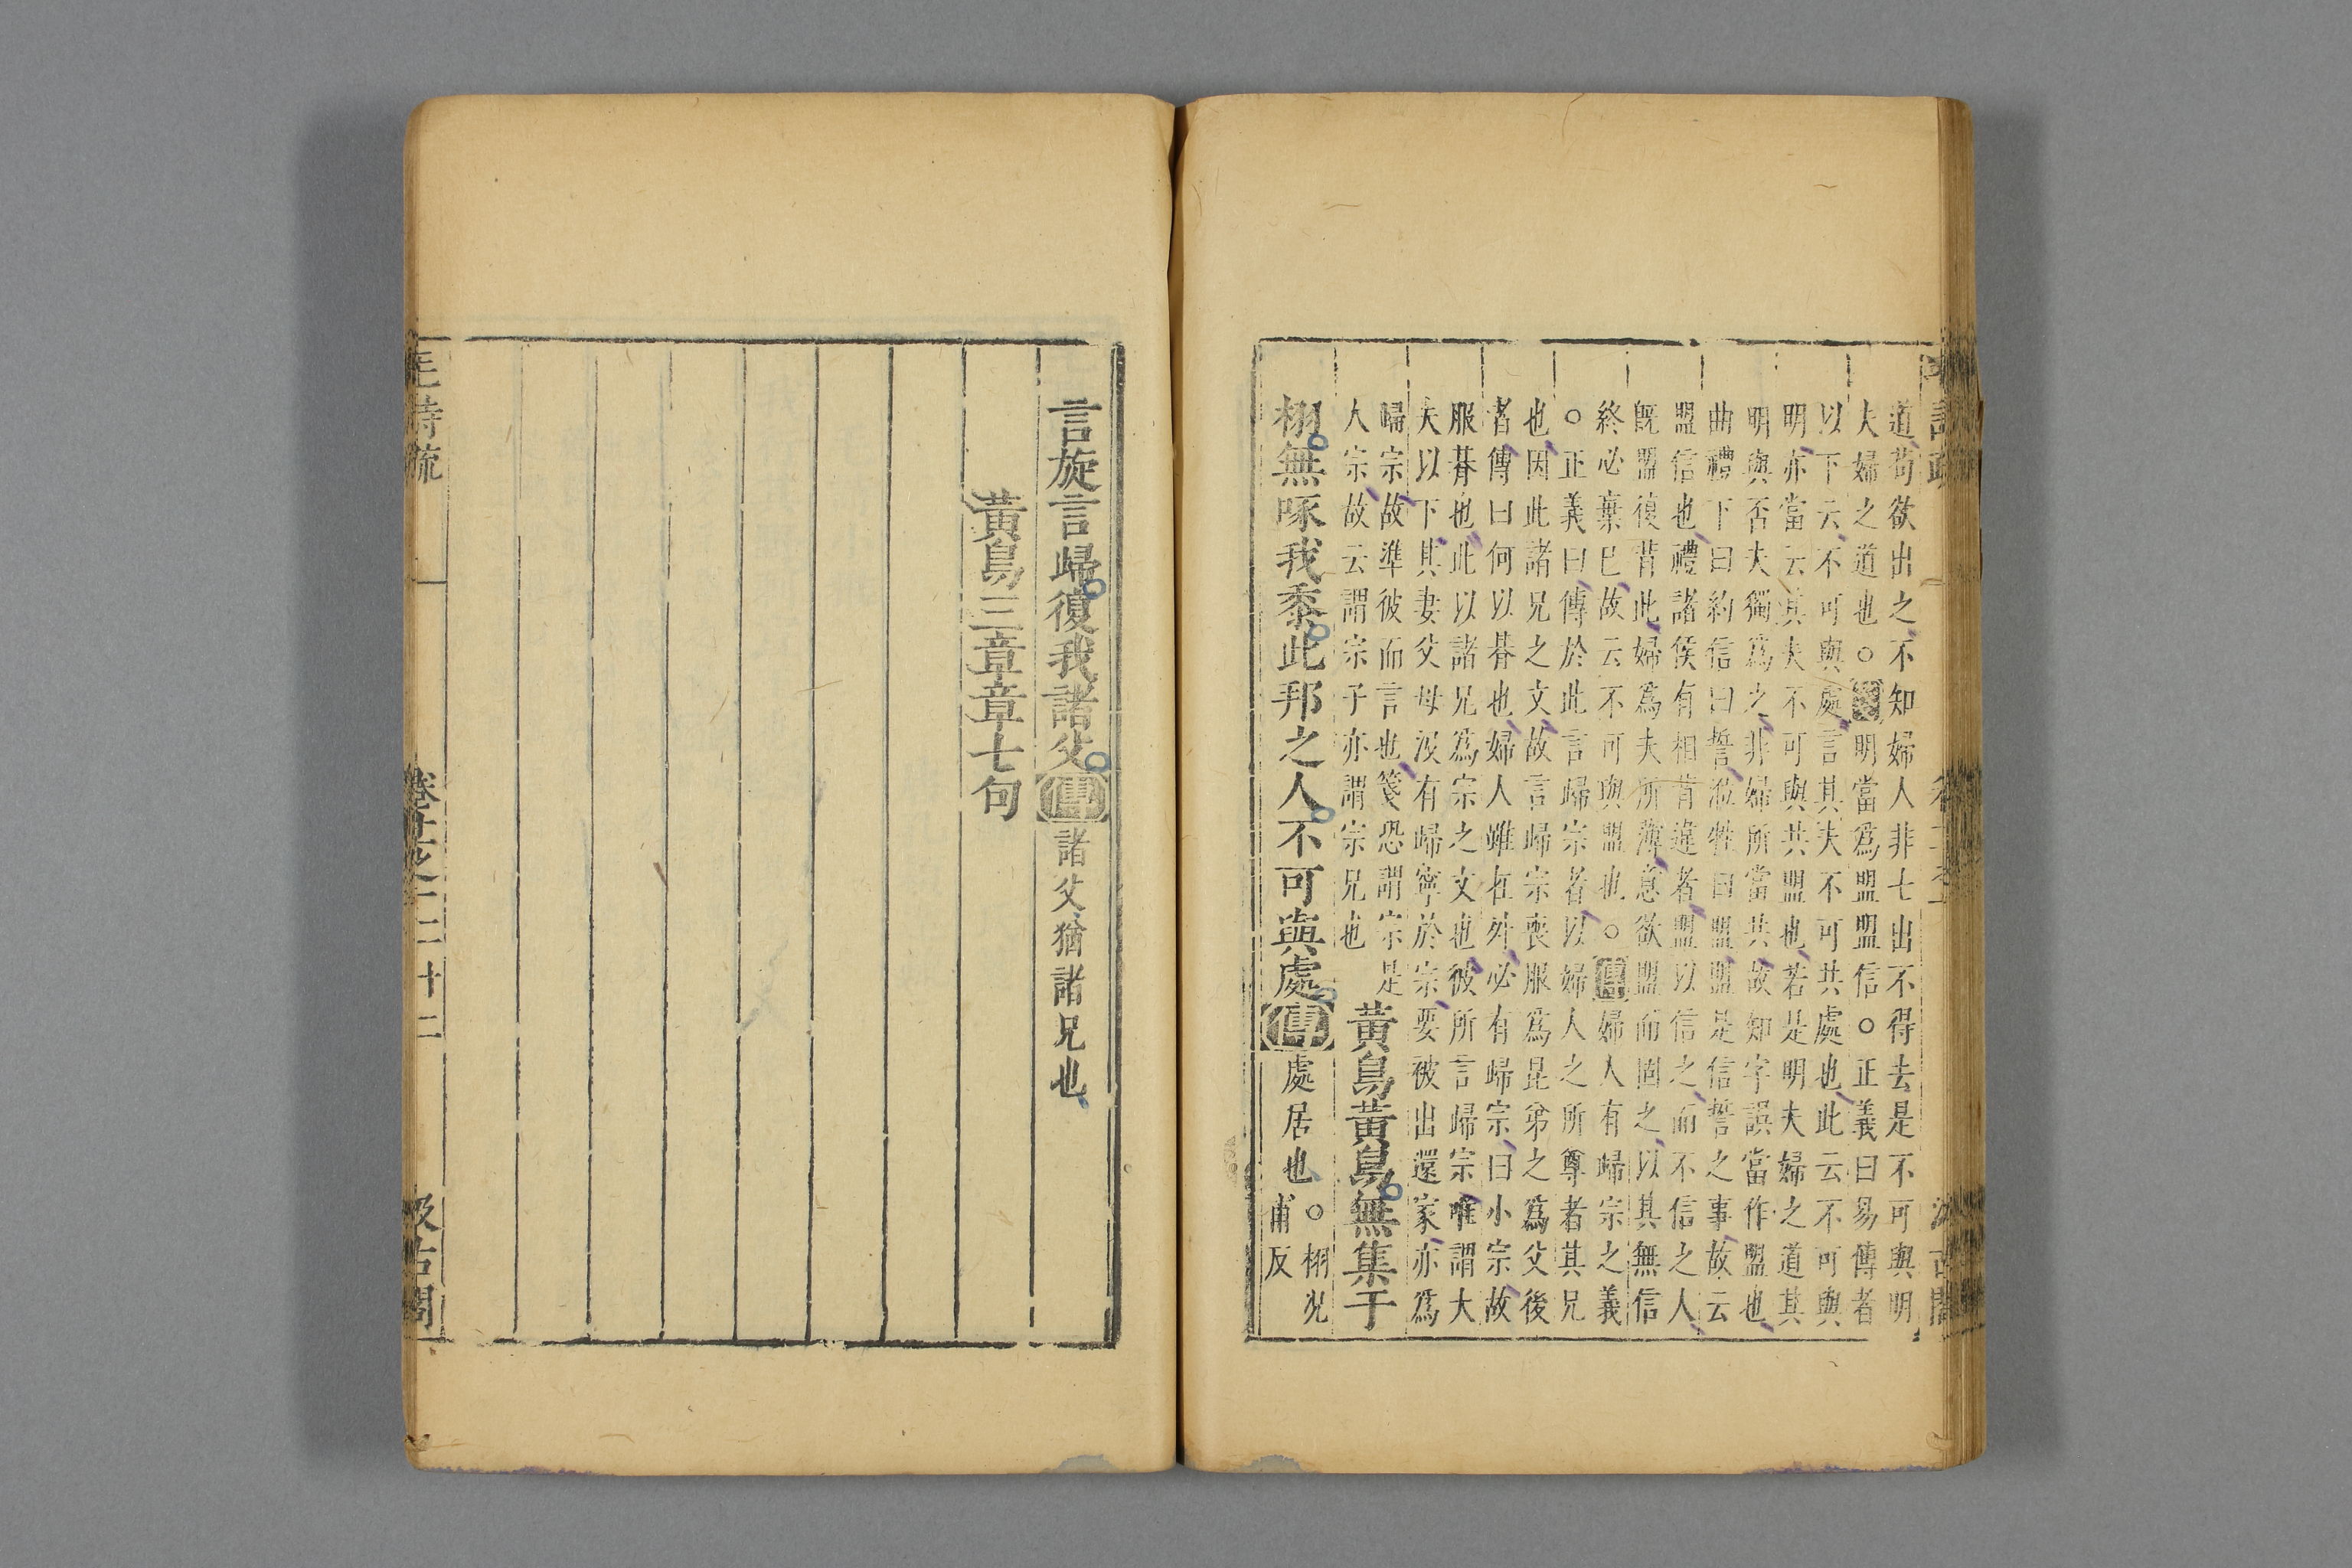 道苟欲出之不知婦人非七出不得去是不可與明
夫婦之道也○箋明當爲盟盟信○正義曰易傳者
以下云不可與處言其夫不可共處也此云不可與
明亦當云其夫不可與共盟也若是明夫婦之道其
明與否夫獨爲之非婦所當共故知字誤當作盟也
曲禮下曰約信曰誓涖牲曰盟盟是信誓之事故云
盟信也禮諸侯有相背違者盟以信之而不信之人
旣盟復背此婦爲夫所薄意欲盟而固之以其無信
終必棄巳故云不可與盟也○傳婦人有歸宗之義
○正義曰傳於此言歸宗者以婦人之所尊者其兄
也因此諸兄之文故言歸宗喪服爲昆弟之爲父後
者傳曰何以朞也婦人雖在外必有歸宗曰小宗故
服朞也此以諸兄爲宗之文也彼所言歸宗唯謂大
夫以下其妻父母沒有歸寧於宗要被出還家亦爲
歸宗故準彼而言也箋恐謂宗是
人宗故云謂宗子亦謂宗兄也
黃鳥黃鳥無集于
栩無啄我黍此邦之人不可與處傳處居也○栩況
甫反
言旋言歸復我諸父傳諸父猶諸兄也
黃鳥三章章七句
毛詩疏 二十二 汲古閣